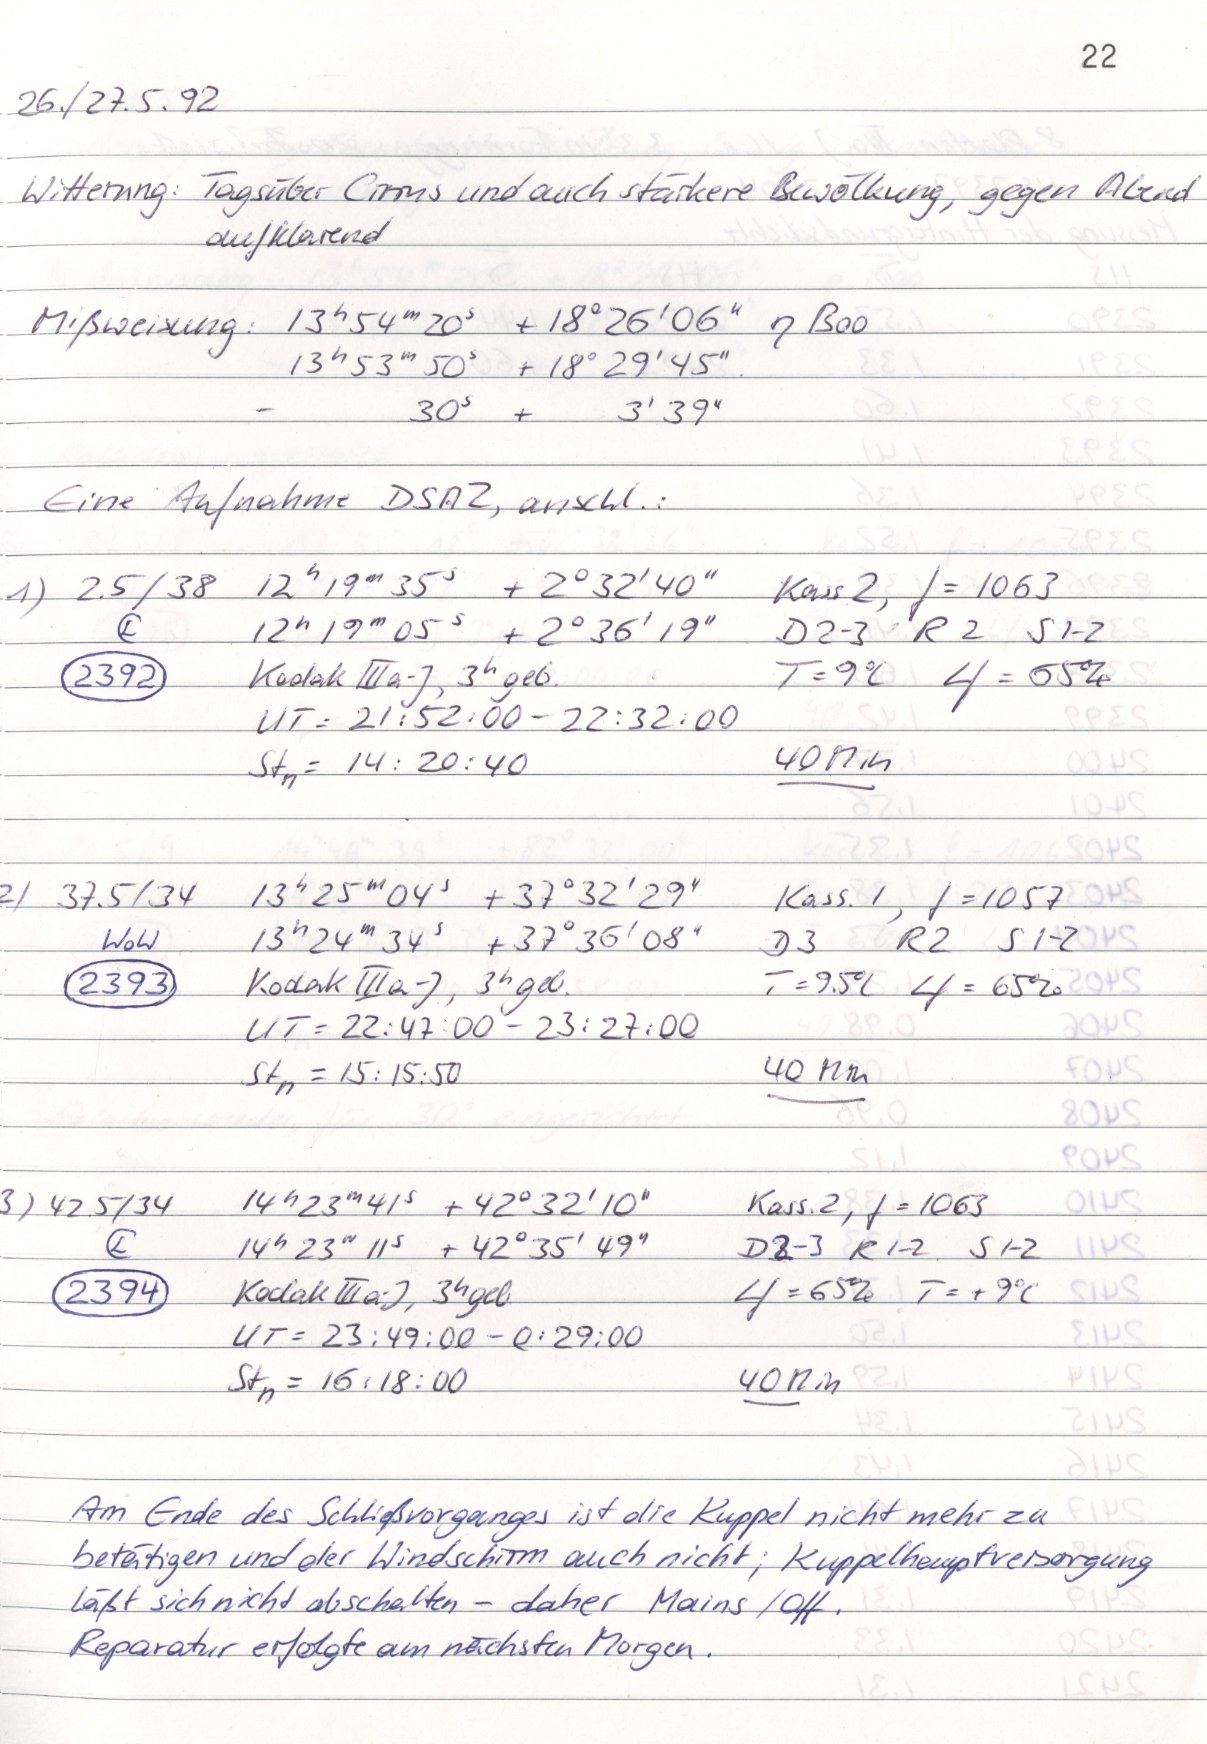 22
26./27.5.92
Witterung: Tagsüber Cirrus und auch stärkere Bewölkung, gegen Abend
aufklarend
Mißweisung: 13ʰ54ᵐ20ˢ +18°26'06" η Boo
13ʰ53ᵐ50ˢ +18°29'45"
- 30ˢ + 3'39"
Eine Aufnahme DSAZ, anschl.:
1) 2.5/38 12ʰ19ᵐ35ˢ +2°32'40" Kass 2, f=1063
12ʰ19ᵐ05ˢ +2°36'19" D2-3 R2 S1-2
2392 Kodak IIIa-J, 3ʰ geb. T=9°C = 65%
UT = 21:52:00 - 22:32:00
Stₙ = 14:20:40 40 Min
2) 37.5/34 13ʰ25ᵐ04ˢ +37°32'29" Kass. 1, f=1057
WoW 13ʰ24ᵐ34ˢ +37°36'08" D3 R2 S1-2
2393 Kodak IIIa-J, 3ʰ geb. T=9.5°C = 65%
UT = 22:47:00 - 23:27:00
Stₙ = 15:15:50 40 Min
3) 42.5/34 14ʰ23ᵐ41ˢ +42°32'10" Kass. 2, f=1063
14ʰ23ᵐ11ˢ +42°35'49" D2-3 R1-2 S1-2
2394 Kodak IIIa-J, 3ʰ geb. = 65% T=+9°C
UT = 23:49:00 - 0:29:00
Stₙ = 16:18:00 40 Min
Am Ende des Schließvorganges ist die Kuppel nicht mehr zu
betätigen und der Windschirm auch nicht; Kuppelhauptversorgung
läßt sich nicht abschalten - daher Mains/Off.
Reparatur erfolgte am nächsten Morgen.